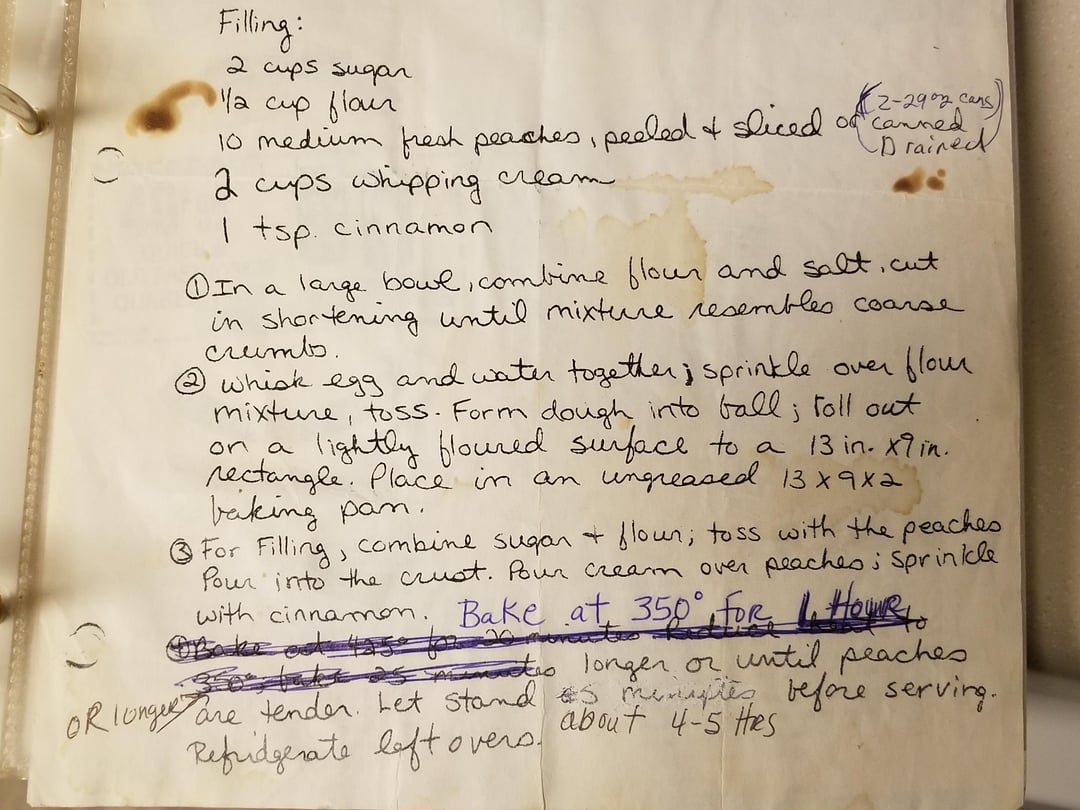 Filling:
2 cups sugar
1/2 cup flour
10 medium fresh peaches, peeled & sliced or (2-29oz cans
canned
Drained)
2 cups whipping cream
1 tsp. cinnamon
① In a large bowl, combine flour and salt, cut
in shortening until mixture resembles coarse
crumbs.
② Whisk egg and water together; sprinkle over flour
mixture, toss. Form dough into ball; roll out
on a lightly floured surface to a 13 in. x 9 in.
rectangle. Place in an ungreased 13 x 9 x 2
baking pan.
③ For Filling, combine sugar & flour; toss with the peaches
Pour into the crust. Pour cream over peaches; sprinkle
with cinnamon. Bake at 350° for 1 Hour
④ Bake at 425° for 20 minutes Reduce heat to
350°, bake 25 minutes longer or until peaches
OR longer are tender. Let stand minutes before serving.
about 4-5 Hrs
Refridgerate leftovers.